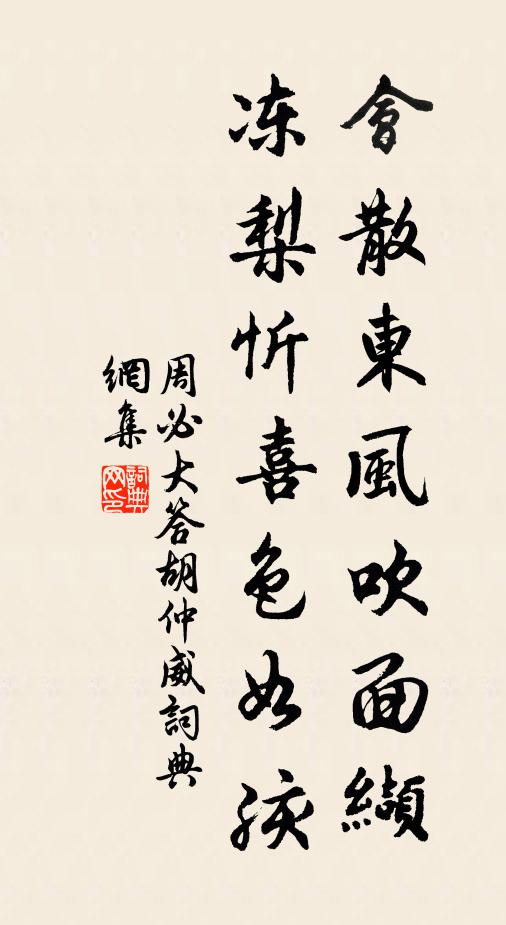 會散東風吹面纈
凍梨忻喜色如孩
周必大答胡仲威詞典
網集
詞典網印